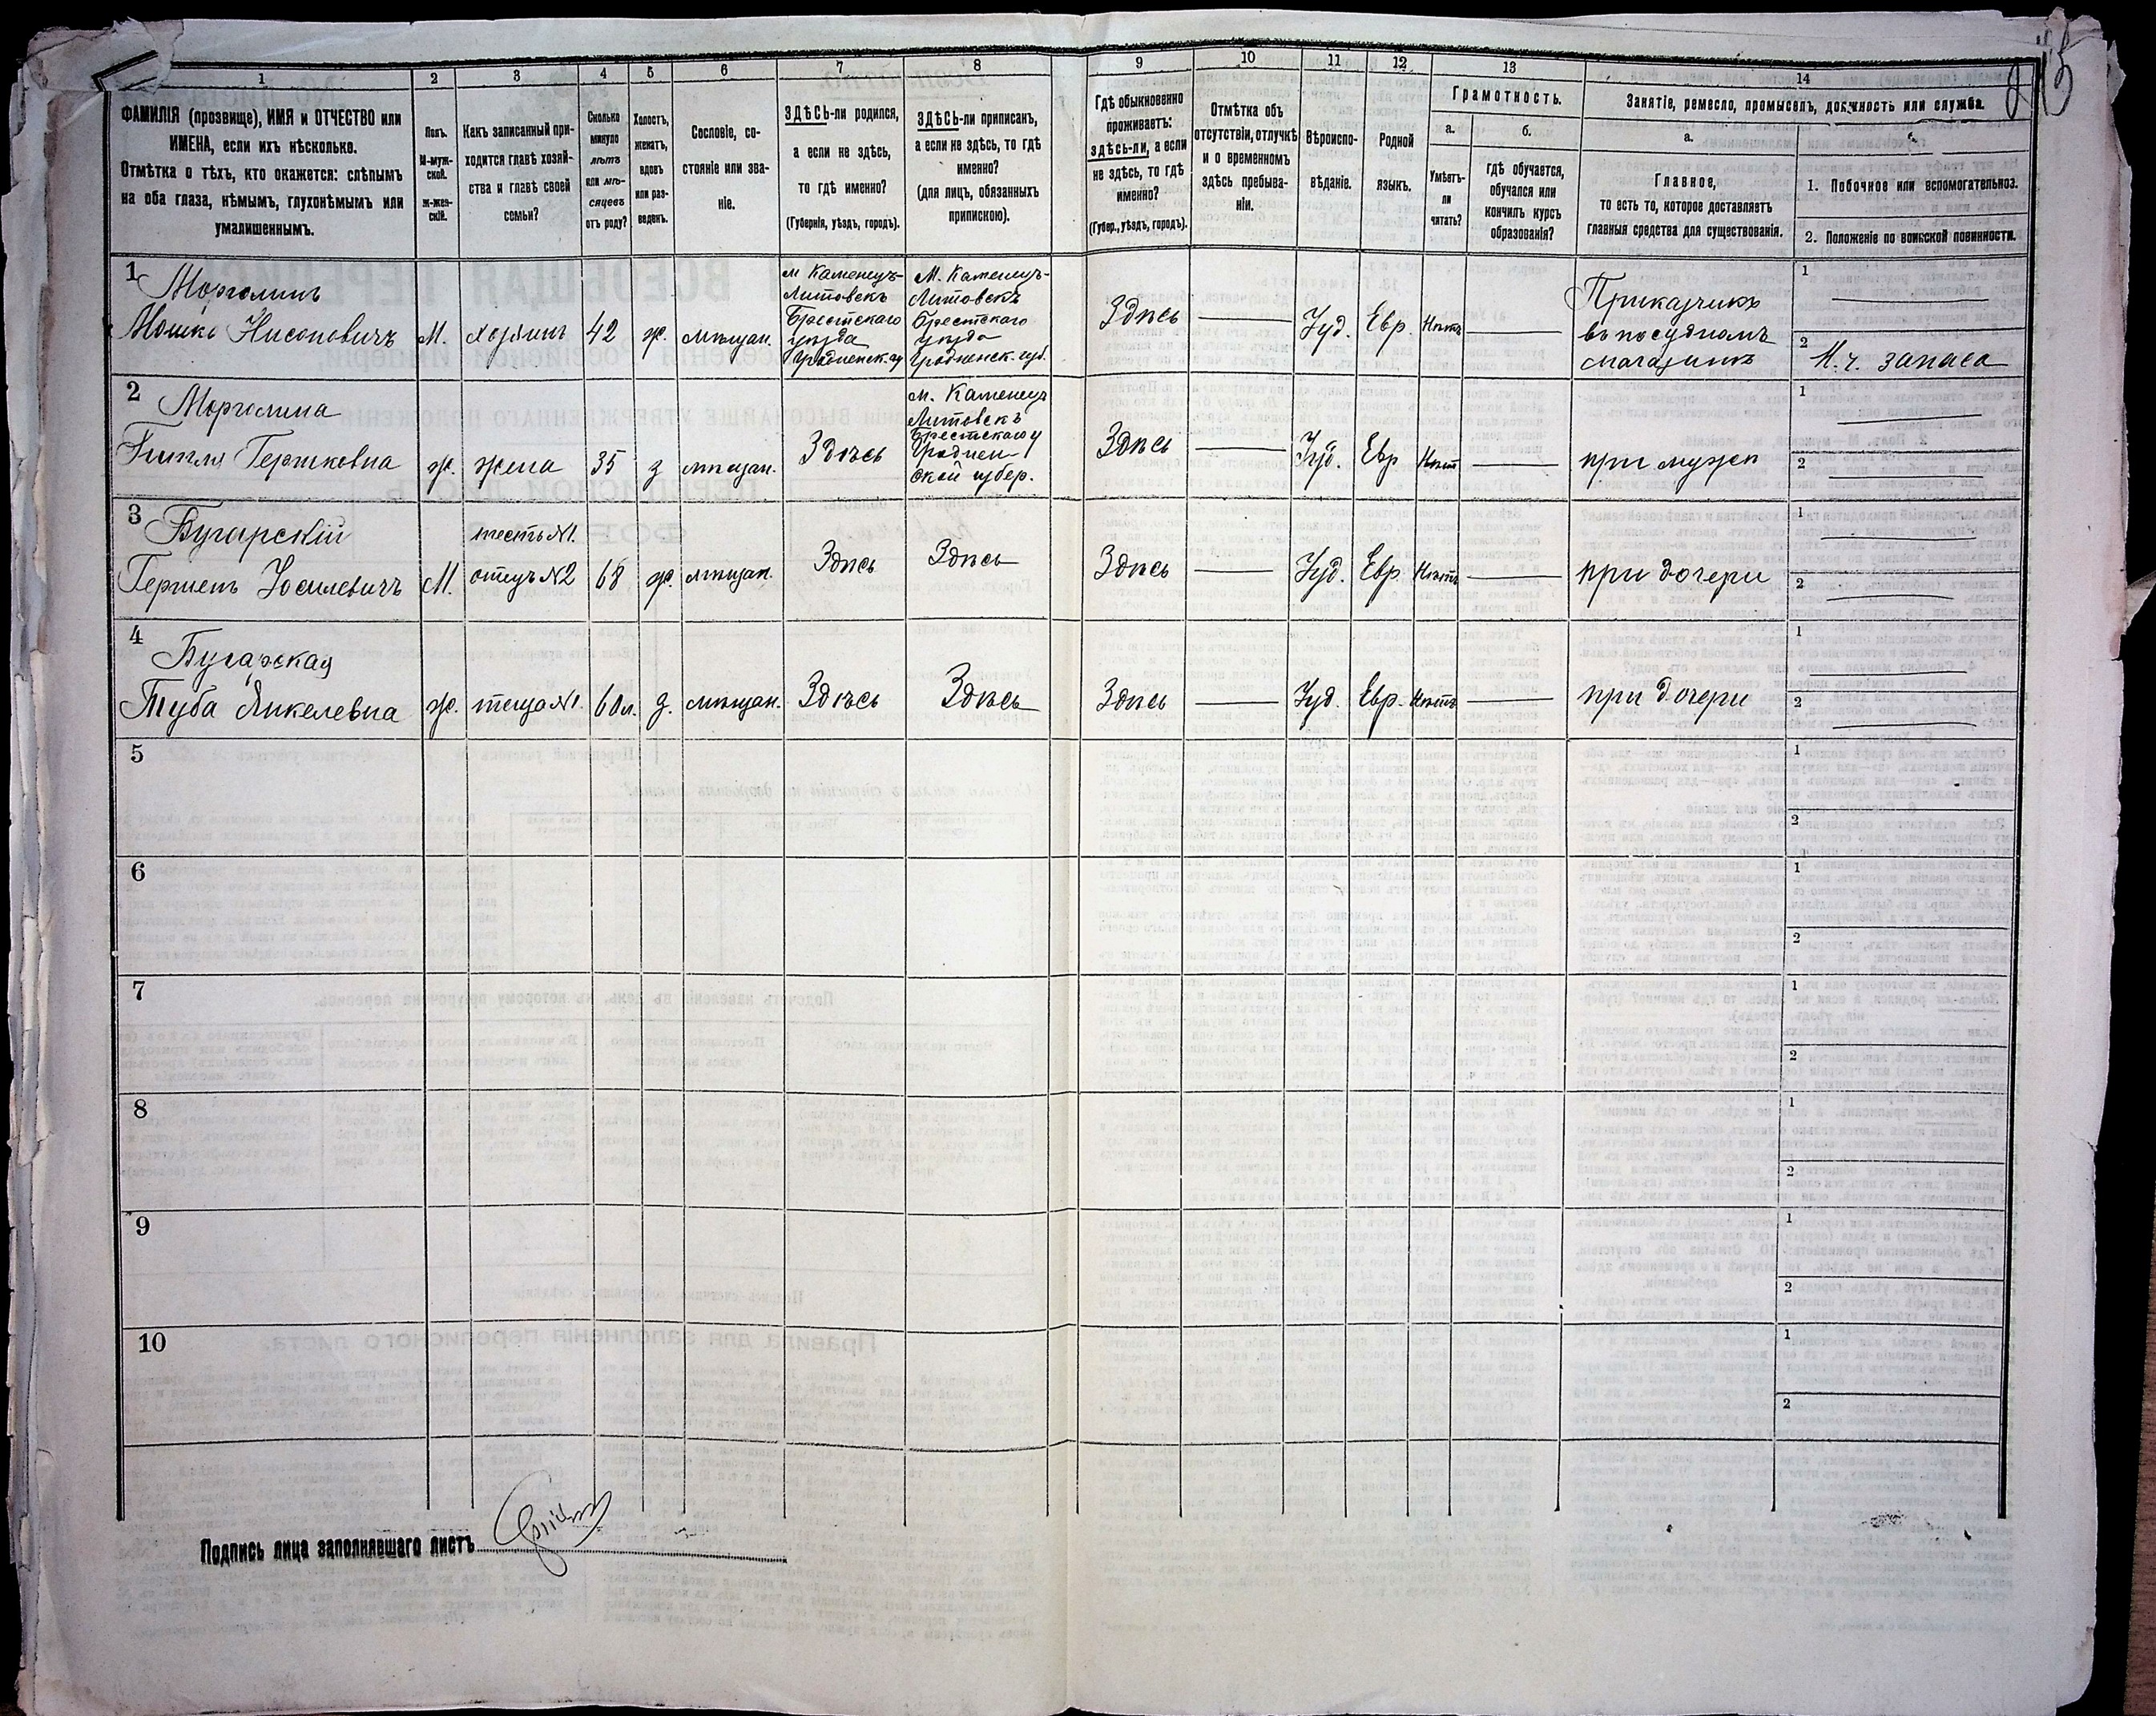 1 2 3 4 5 6 7 8 9 10 11 12 13 14
ФАМИЛІЯ (прозвище), ИМЯ и ОТЧЕСТВО или
ИМЕНА, если ихъ нѣсколько.
Отмѣтка о тѣхъ, кто окажется: слѣпымъ
на оба глаза, нѣмымъ, глухонѣмымъ или
умалишеннымъ.
Полъ.
М-муж-
ской.
Ж-жен-
скій.
Какъ записанный при-
ходится главѣ хозяй-
ства и главѣ своей
семьи?
Сколько
минуло
лѣтъ
или мѣ-
сяцевъ
отъ роду?
Холостъ,
женатъ,
вдовъ
или раз-
веденъ.
Сословіе, со-
стояніе или зва-
ніе.
ЗДѢСЬ-ли родился,
а если не здѣсь,
то гдѣ именно?
(Губернія, уѣздъ, городъ).
ЗДѢСЬ-ли приписанъ,
а если не здѣсь, то гдѣ
именно?
(для лицъ, обязанныхъ
припискою).
Гдѣ обыкновенно
проживаетъ:
здѣсь-ли, а если
не здѣсь, то гдѣ
именно?
(Губер., уѣздъ, городъ).
Отмѣтка объ
отсутствіи, отлучкѣ
и о временномъ
здѣсь пребыва-
ніи.
Вѣроиспо-
вѣданіе.
Родной
языкъ.
Грамотность.
а.
Умѣетъ-
ли
читать?
б.
гдѣ обучается,
обучался или
кончилъ курсъ
образованія?
Занятіе, ремесло, промыселъ, должность или служба.
а.
Главное,
то есть то, которое доставляетъ
главныя средства для существованія.
1. Побочное или вспомогательное.
2. Положеніе по воинской повинности.
1
Морголинъ
Мошко Нисоновичъ
М.
хозяинъ
42
ж.
мѣщан.
м Каменецъ-
Литовскъ
Брестскаго
уѣзда
Гродненск. гу
М. Каменецъ-
Литовскъ
Брестскаго
уѣзда
Гродненск. губ.
Здѣсь
Іуд.
Евр.
Нѣтъ
Приказчикъ
въ посудномъ
магазинѣ
1
2
Н. ч. запаса
2
Морголина
Гершковна
ж.
жена
35
з
мѣщан.
Здѣсь
м. Каменецъ
Литовскъ
Брестскаго у
Гроднен-
ской губер.
Здѣсь
Іуд.
Евр
Нѣт
при мужѣ
1
2
3
Бугарскій
Іоселевичъ
М.
тесть №1.
отецъ №2
68
ж.
мѣщан.
Здѣсь
Здѣсь
Здѣсь
Іуд.
Евр.
Нѣтъ
при дочери
1
2
4
Бугарская
Туба Янкелевна
ж.
теща №1.
60 л.
з.
мѣщан.
Здѣсь
Здѣсь
Здѣсь
Іуд.
Евр.
Нѣтъ
при дочери
1
2
5
1
2
6
1
2
7
1
2
8
1
2
9
1
2
10
1
2
Подпись лица заполнявшаго листъ